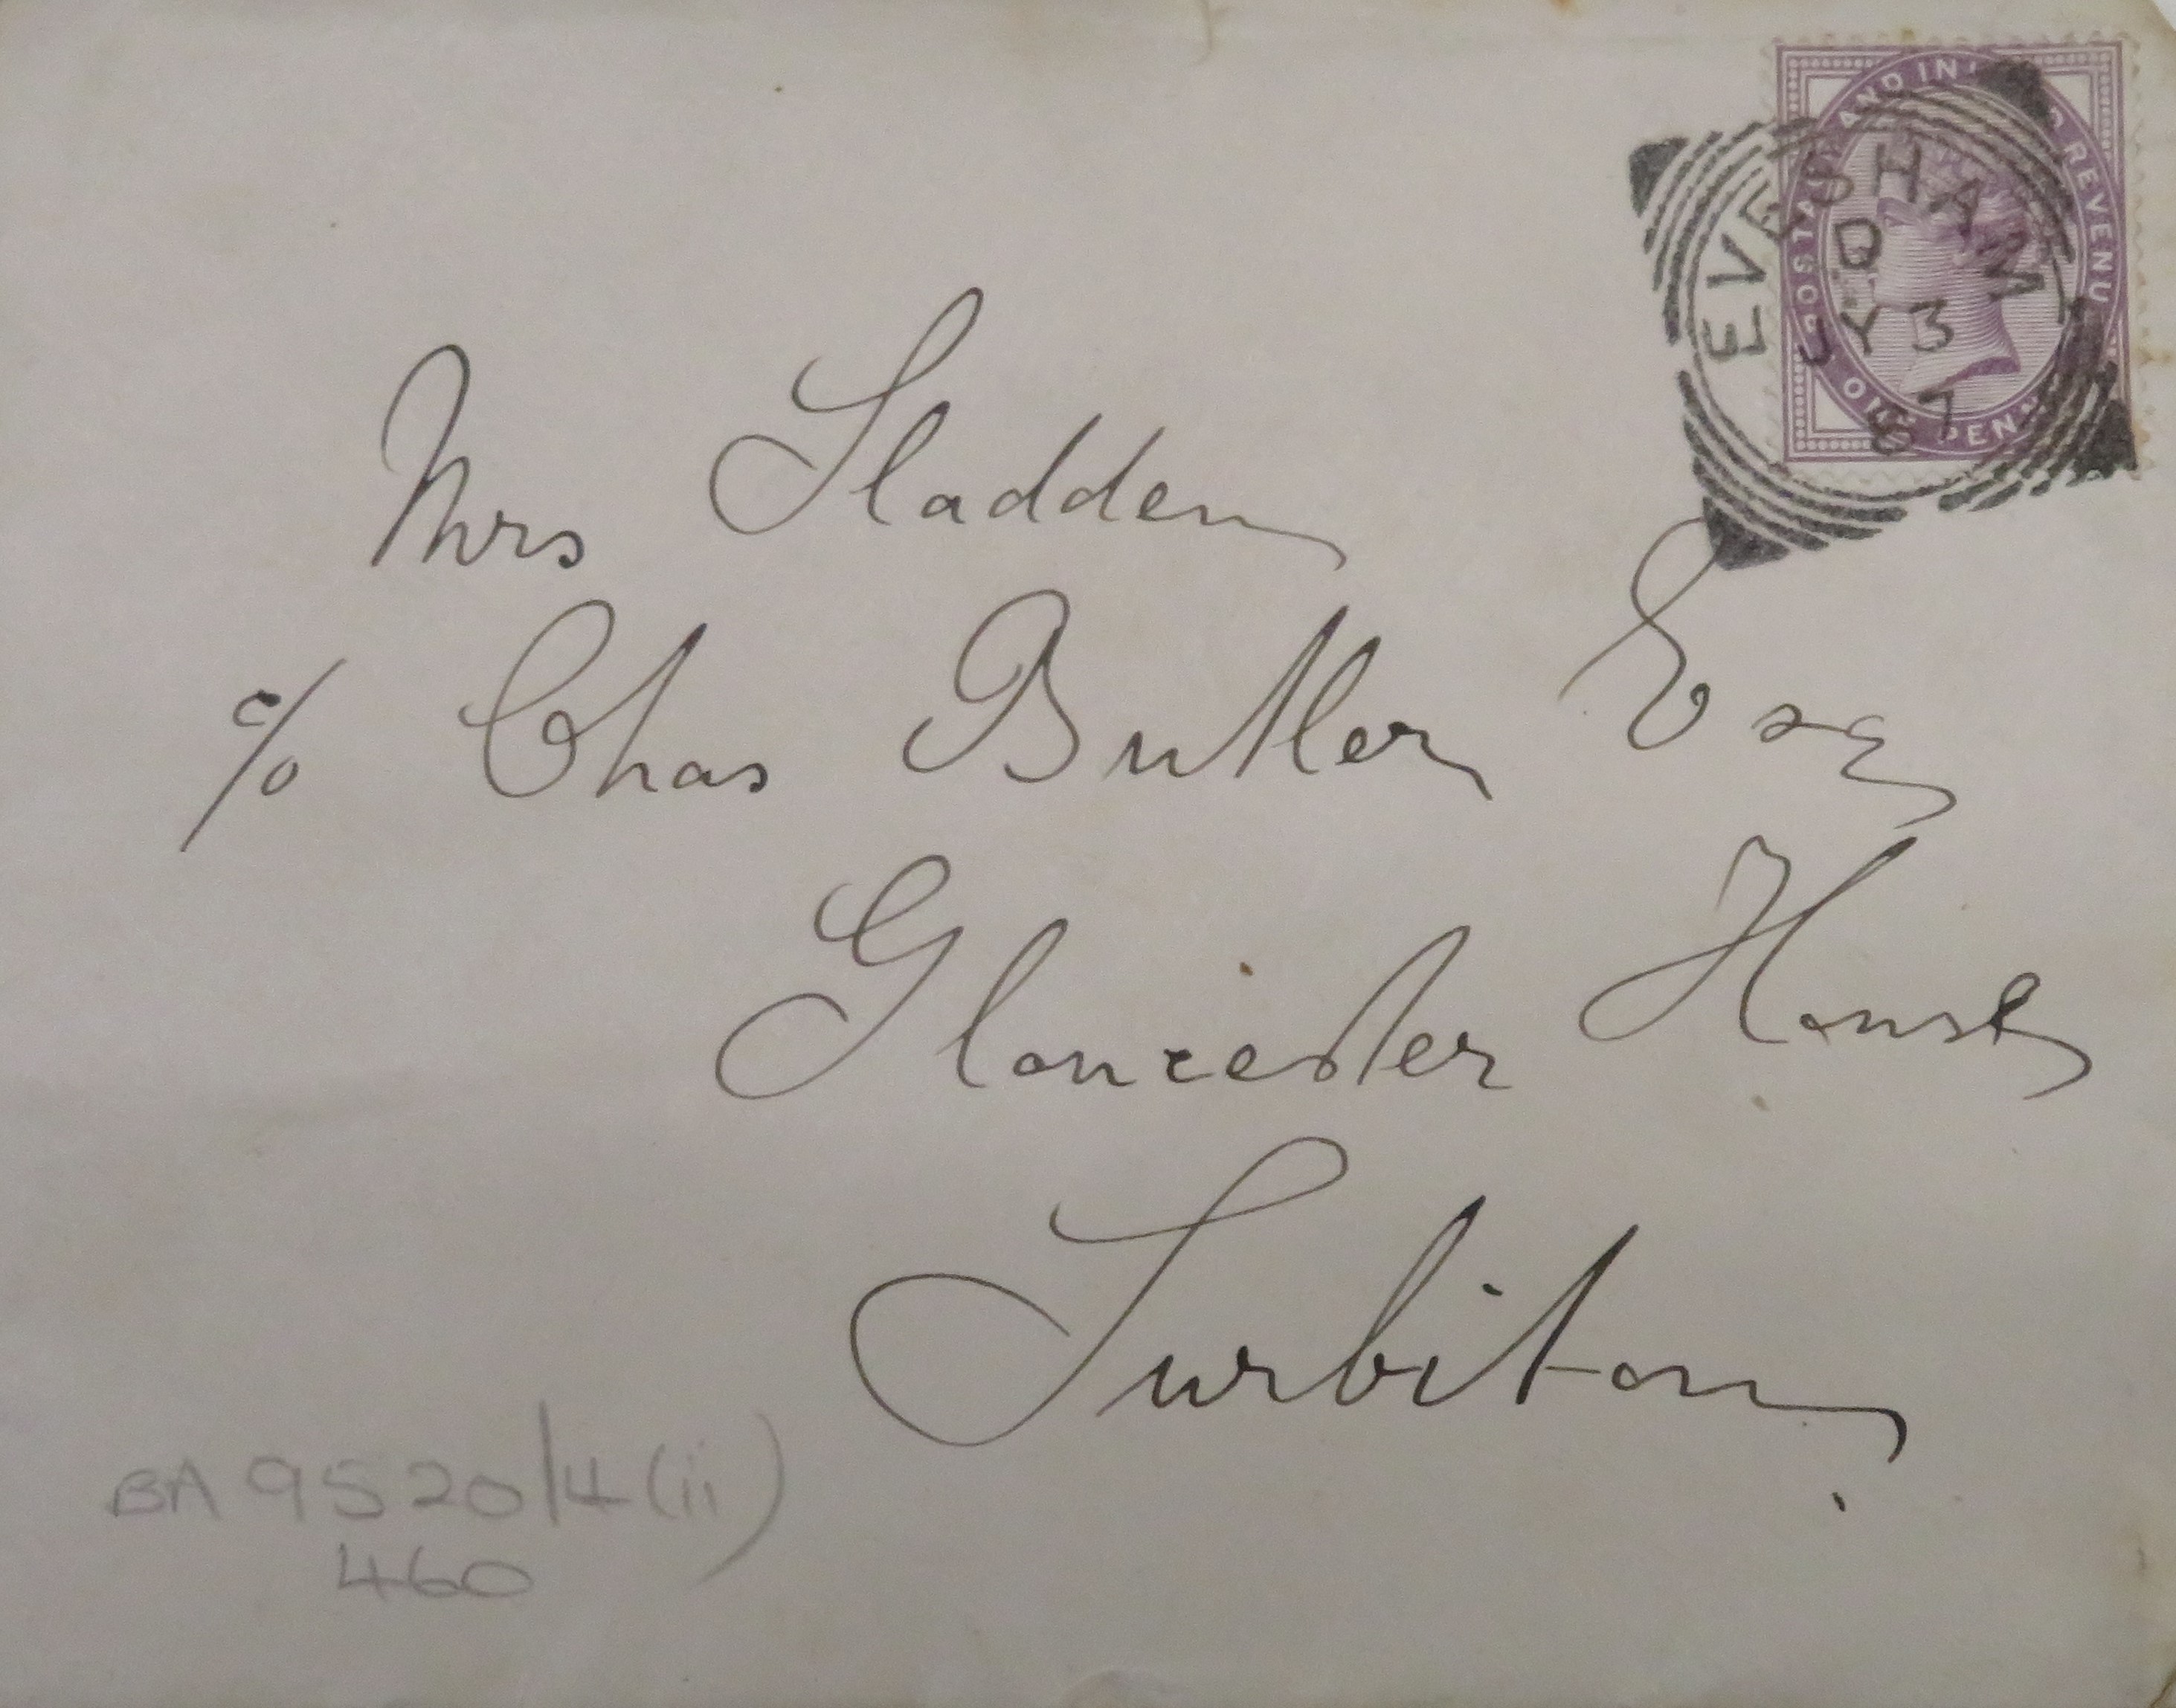 POSTAGE AND IN D REVENU
ONE PENNY
EVESHAM
D
JY 3
87
Mrs Sladden
c/o Chas Butler Esq
Gloucester House
Surbiton
BA 9520/4(ii)
460